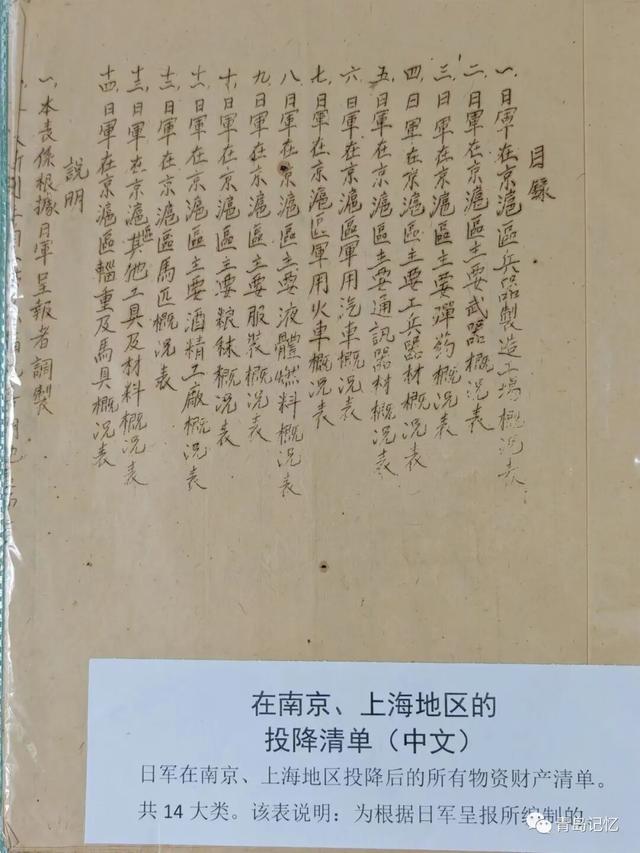 目錄
一、日軍在京滬區兵器製造工場概況表
二、日軍在京滬區主要武器概況表
三、日軍在京滬區主要彈药概況表
四、日軍在京滬區主要工兵器材概況表
五、日軍在京滬區主要通訊器材概況表
六、日軍在京滬區軍用汽車概況表
七、日軍在京滬區軍用火車概況表
八、日軍在京滬區主要液體燃料概況表
九、日軍在京滬區主要服裝概況表
十、日軍在京滬區主要粮秣概況表
十一、日軍在京滬區主要酒精工廠概況表
十二、日軍在京滬區馬匹概況表
十三、日軍在京滬區其他工具及材料概況表
十四、日軍在京滬區輜重及馬具概況表
說明
一、本表係根據日軍呈報者調製
在南京、上海地区的
投降清单（中文）
日军在南京、上海地区投降后的所有物资财产清单。
共 14 大类。该表说明：为根据日军呈报所编制的
青岛记忆